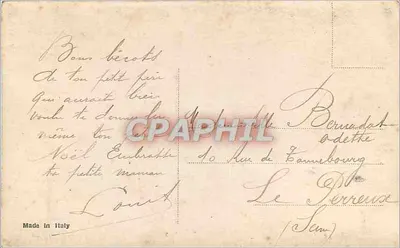 Bons bécots
de ton petit
qui aurait bien
voulu te donner lui
même ton
Noël Embrasse
ta petite maman
Louis
Mademoiselle Bernadat
Odette
10 Rue de
Le Perreux
(Seine)
Made in Italy
CPAPHIL